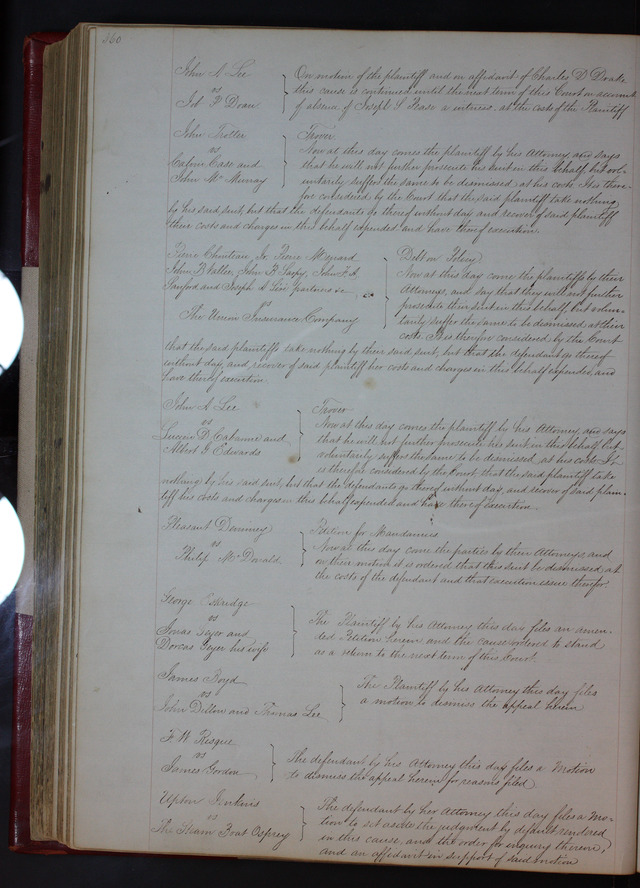 360
John A Lee
vs
Jd. P Doan
On motion of the plaintiff and on affidavit of Charles D Drake
this cause is continued until the next term of this Court on account
of absence of Joseph S Pease a witness, at the costs of the Plaintiff
John Trotter
vs
Calvin Case and
John Mc Murray
Trover
Now at this day comes the plaintiff by his Attorney and says
that he will not further prosecute his suit in this behalf but vol-
untarily suffers the same to be dismissed at his costs. It is there-
fore considered by the Court that the said plaintiff take nothing
by his said suit, but that the defendants go thereof without day and recover of said plaintiff
their costs and charges in this behalf expended and have thereof execution.
Pierre Chouteau Jr. Pierre Menard
John B Vallee, John B Sarpy, John F A
Sanford and Joseph A Sire partners &c
vs
The Union Insurance Company
Debt on Policy
Now at this day come the plaintiffs by their
Attorneys, and say that they will not further
prosecute their suit in this behalf, but volun-
tarily suffer the same to be dismissed at their
costs. It is therefore considered by the Court
that the said plaintiffs take nothing by their said suit, but that the defendant go thereof
without day, and recover of said plaintiff her costs and charges in this behalf expended, and
have thereof execution.
John A Lee
vs
Lucien D Cabanne and
Albert G Edwards
Trover
Now at this day comes the plaintiff by his Attorney and says
that he will not further prosecute his suit in this behalf, but
voluntarily suffers the same to be dismissed, at his costs. It
is therefore considered by the Court that the said plaintiff take
nothing by his said suit, but that the defendants go thereof without day, and recover of said plain-
tiff his costs and charges in this behalf expended and have thereof execution.
Pleasant Downing
vs
Philip Mc Donald
Petition for Mandamus
Now at this day come the parties by their Attorneys, and
on their motion it is ordered that this suit be dismissed, at
the costs of the defendant and that execution issue therefor
George Eskridge
vs
Jonas Geyer and
Dorcas Geyer his wife
The Plaintiff by his Attorney this day files an amen-
ded Petition herein and the cause ordered to stand
as a return to the next term of this Court.
James Boyd
vs
John Dillon and Thomas Lee
The Plaintiff by his Attorney this day files
a motion to dismiss the appeal herein
F W Risque
vs
James Gordon
The defendant by his Attorney this day files a Motion
to dismiss the appeal herein for reasons filed
Upton Jenkins
vs
The Steam Boat Osprey
The defendant by her Attorney this day files a Mo-
tion to set aside the judgment by default rendered
in this cause, and the order for inquiry therein,
and an affidavit in support of said motion